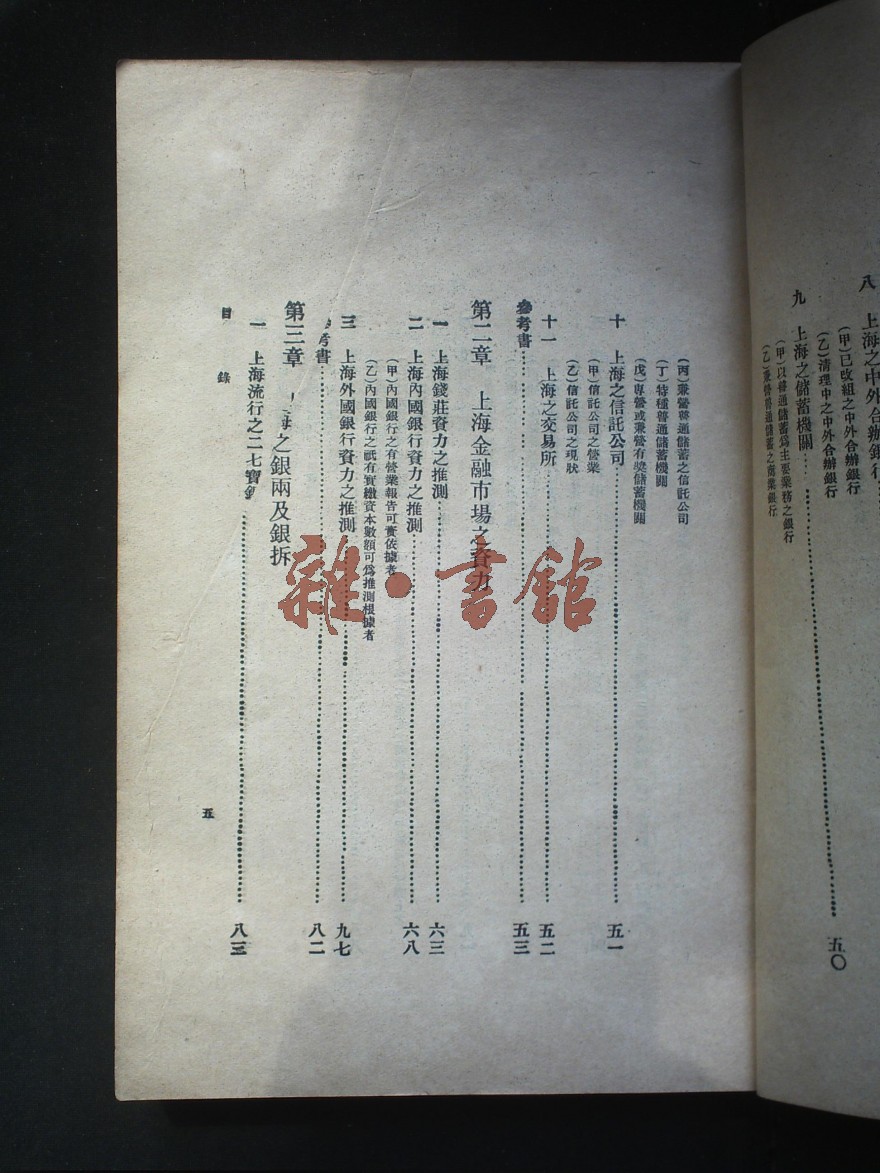 八 上海之中外合辦銀行
(甲)已改組之中外合辦銀行
(乙)清理中之中外合辦銀行
九 上海之儲蓄機關……五〇
(甲)以普通儲蓄爲主要業務之銀行
(乙)兼營普通儲蓄之商業銀行
(丙)兼營普通儲蓄之信託公司
(丁)特種普通儲蓄機關
(戊)專營或兼營有獎儲蓄機關
十 上海之信託公司……五一
(甲)信託公司之營業
(乙)信託公司之現狀
十一 上海之交易所……五二
參考書……五三
第二章 上海金融市場之資力
一 上海錢莊資力之推測……六三
二 上海內國銀行資力之推測……六八
(甲)內國銀行之有營業報告可資依據者
(乙)內國銀行之祇有實繳資本數額可爲推測根據者
三 上海外國銀行資力之推測……九七
考書……八二
第三章 海之銀兩及銀拆
一 上海流行之二七寶銀……八三
目錄
五
雜·書館